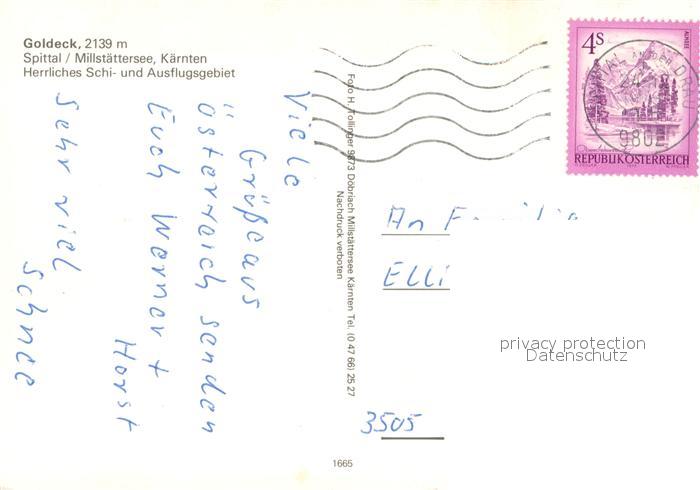 Goldeck, 2139 m
Spittal / Millstättersee, Kärnten
Herrliches Schi- und Ausflugsgebiet
Viele
Grüße aus
Österreich senden
Euch Werner +
Horst
Sehr viel
Schnee
Foto H. Tollinger 9873 Döbriach Millstättersee Kärnten Tel. (0 47 66) 25 27
Nachdruck verboten
4s
ALMSEE
REPUBLIK ÖSTERREICH
AN DER
9802
An
Elli
privacy protection
Datenschutz
3505
1665